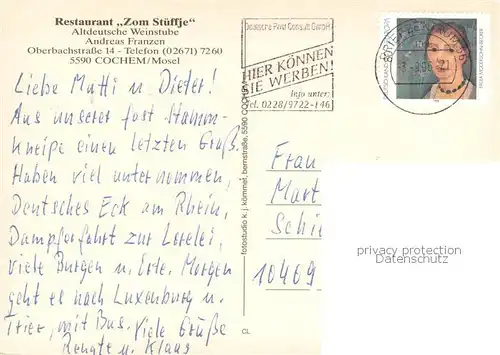 Restaurant „Zom Stüffje“
Altdeutsche Weinstube
Andreas Franzen
Oberbachstraße 14 - Telefon (02671) 7260
5590 COCHEM/Mosel
Liebe Mutti u. Dieter!
Aus unserer fast Stamm-
kneipe einen letzten Gruß.
Haben viel unternommen,
Deutsches Eck am Rhein,
Dampferfahrt zur Lorelei,
viele Burgen u. Orte. Morgen
geht es nach Luxemburg u.
Trier, mit Bus. Viele Grüße
Renate u. Klaus
fotostudio k. j. kömmof, bernstraße, 5590 COCHEM
CL
Deutsche Post Consult GmbH
HIER KÖNNEN
SIE WERBEN!
Info unter:
Tel. 0228/9722-146
BRIEFZENTRUM
Frau
Mart
Schi
10409
privacy protection
Datenschutz